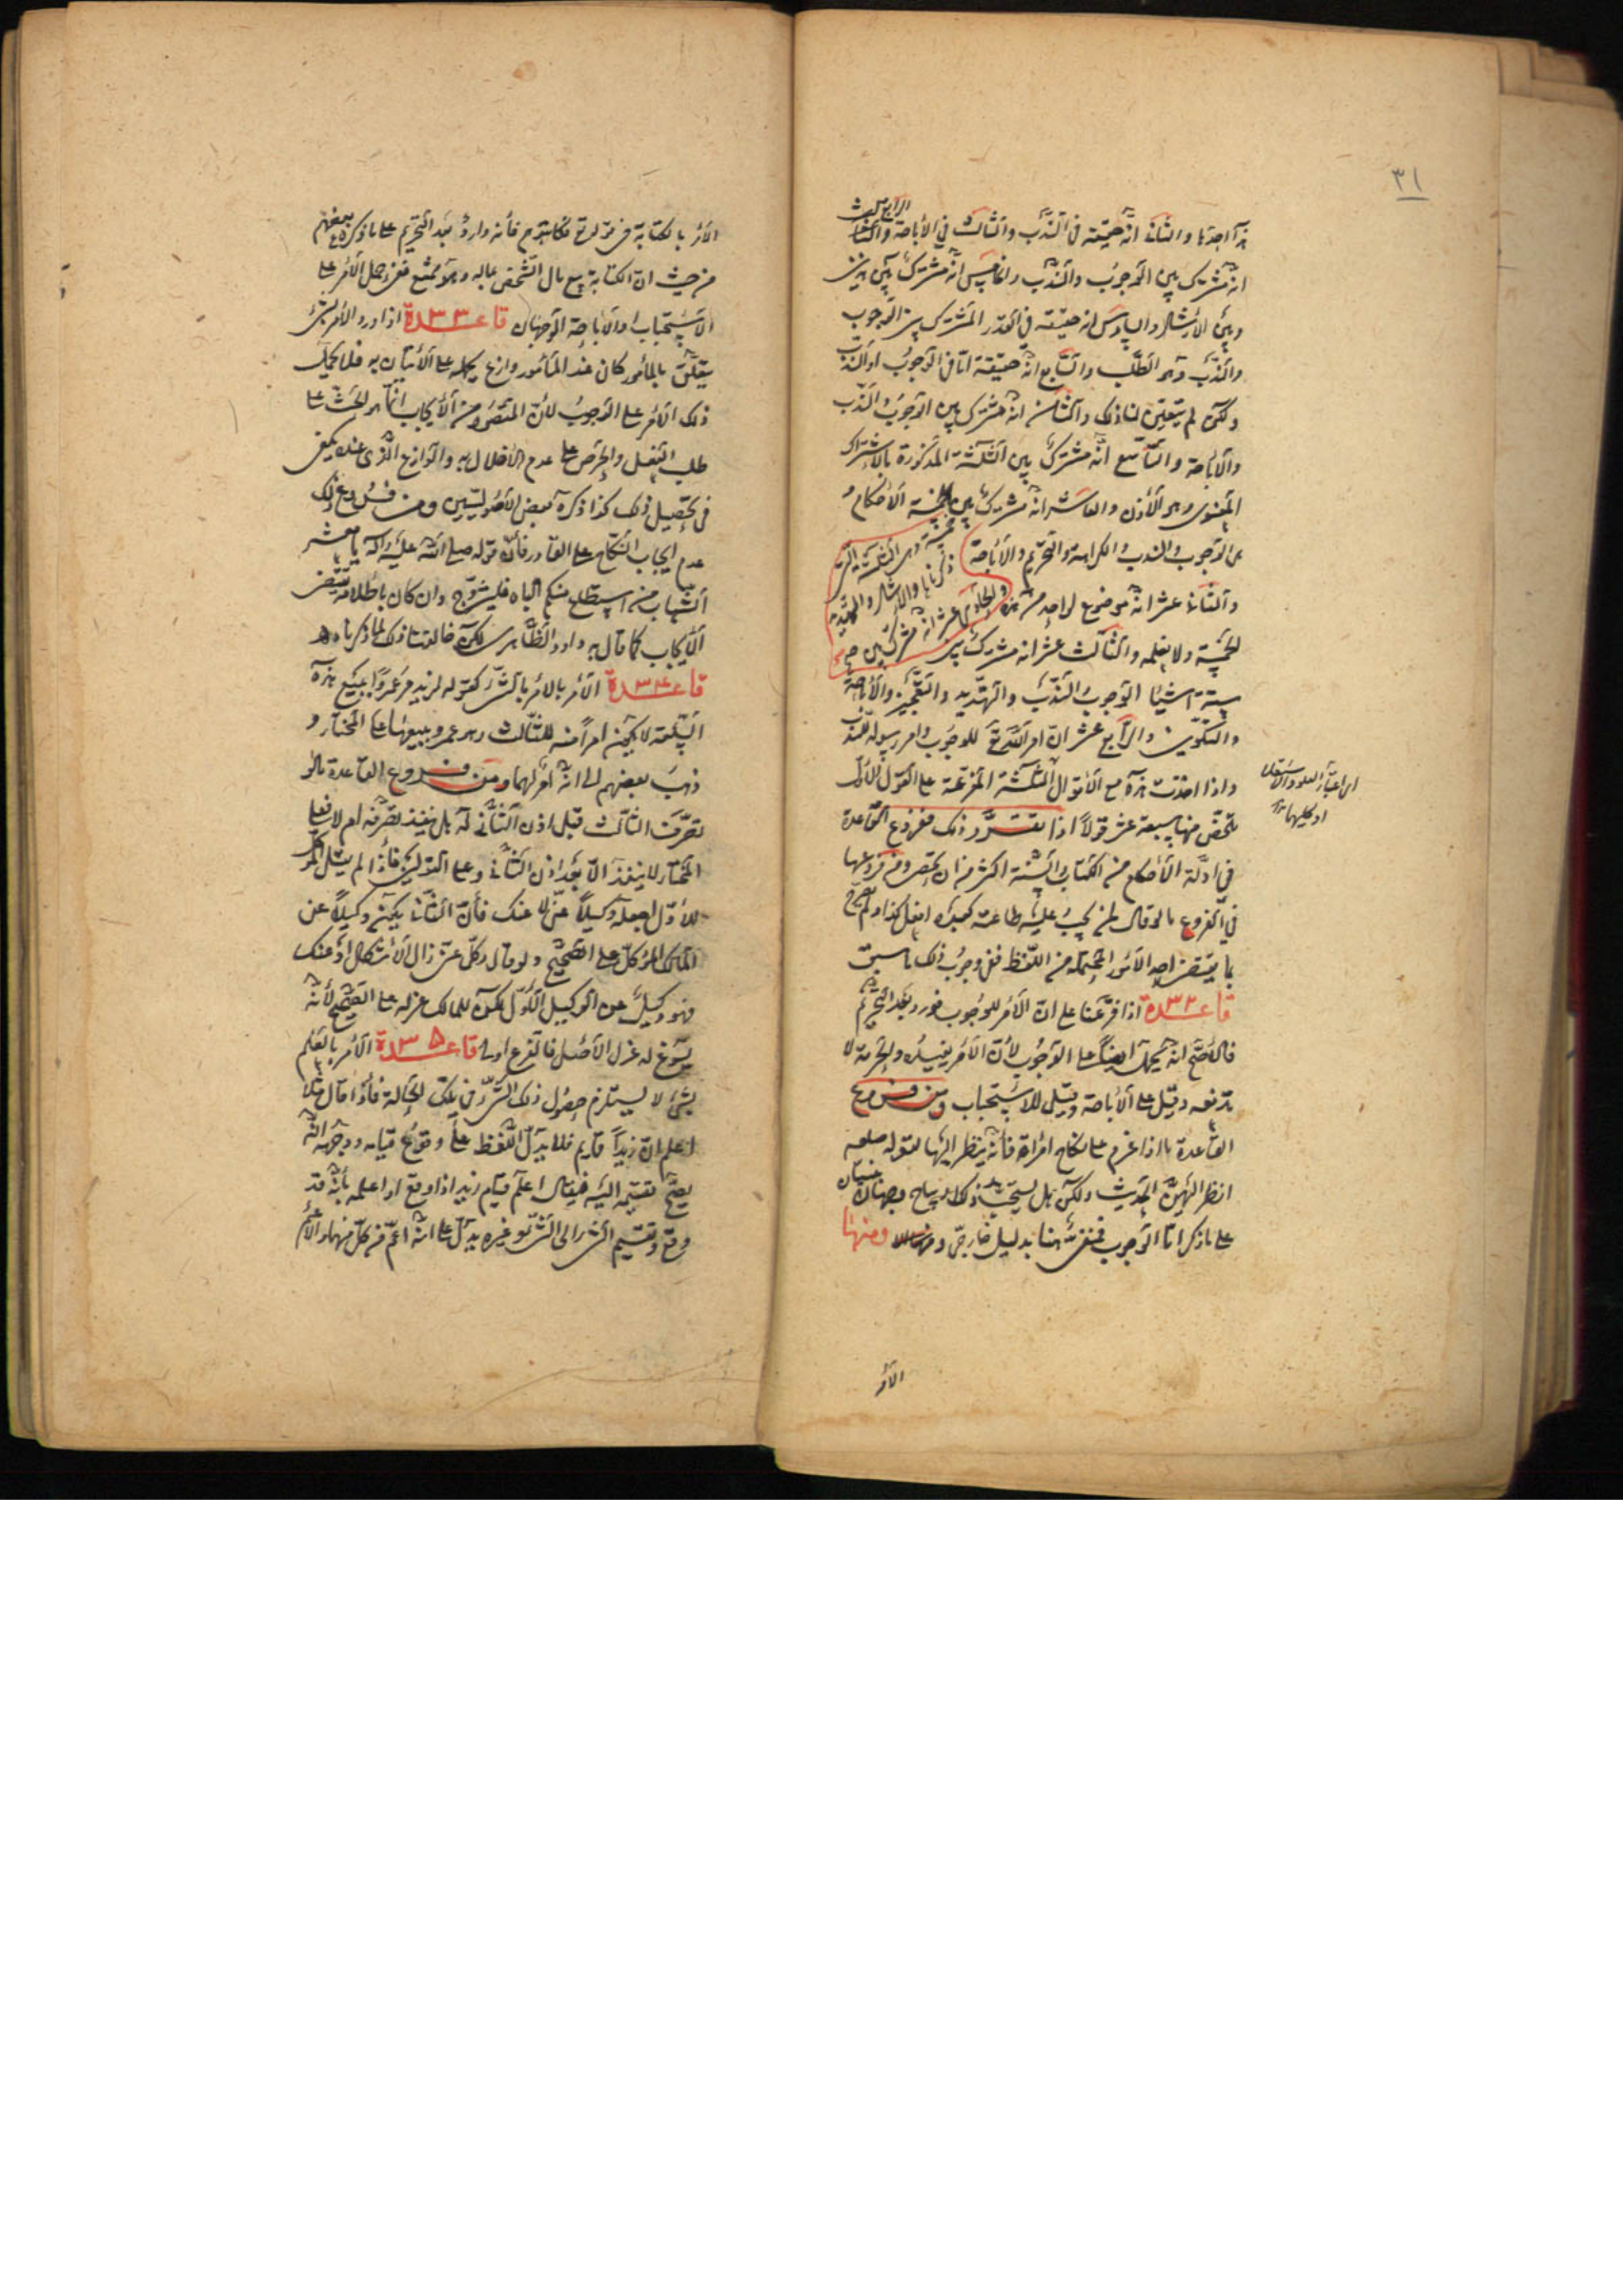 ٣١
هذا احدها والثانى انه حقيقة فى الندب والثالث فى الأباحة
الرابع
انه مشترك بين الوجوب والندب والخامس انه مشترك بين هذين
وبين الارشاد والسادس انه حقيقة فى القدر المشترك بين الوجوب
والندب وهو الطلب والسابع انه حقيقة اما فى الوجوب او الندب
ولكن لم يتعين لنا ذلك والثامن انه مشترك بين الوجوب والندب
والاباحة والتاسع انه مشترك بين الثلثة المذكورة بالاشتراك
المعنوى وهو الأذن والعاشر انه مشترك بين خمسة الأحكام و
هى الوجوب والندب والكراهة والتحريم والاباحة
والحادى عشر انه مشترك بين خمسة وهى الثلثة التى ذكرناها والارشاد والتهديد
والثانى عشر انه موضوع لواحد من هذه
الخمسة ولا نعلمه والثالث عشر انه مشترك بين
ستة اشياء الوجوب والندب والتهديد والتعجيز والأباحة
والتكوين والرابع عشر ان امر الله تع للوجوب وامر رسوله للندب
واذا اخذت هذه مع الأقوال الثلثة المفرعة على القول الأول
تلخص منها سبعة عشر قولا اذا تقرر ذلك ففروع القاعدة
فى ادلة الأحكام من الكتاب والسنة اكثر من ان تحصى ومن فروعها
فى الفروع ما لو قال لمن يجب عليه طاعته كعبده افعل كذا ولم يصرح
بما يقتضى احد الأمور المحتملة من اللفظ ففى وجوب ذلك ما سبق
قاعدة ٣٢ اذا فرعنا على ان الأمر للوجوب فورد بعد التحريم
فالأصح انه يحمل ايضا على الوجوب لأن الأمر يفيده والحرمة لا
تدفعه وقيل على الأباحة وقيل للاستحباب ومن فروع
القاعدة ما اذا عزم على نكاح امرأة فأنه ينظر اليها لقوله صلعم
انظر اليهن الحديث ولكن هل يستحب ذلك او يباح وجهان مبنيان
على ما ذكر اما الوجوب فمنفى هنا بدليل خارجى ومنها
الأمر
اى اعتبار العلو والاستعلاء
او كليهما
الأمر بالكتابة فى قوله تع فكاتبوهم فأنه وارد بعد التحريم على ما ذكره بعضهم
من حيث ان الكتابة بيع مال الشخص بماله وهو ممتنع ففى حمل الأمر على
الاستحباب او الأباحة الوجهان قاعدة ٣٣ اذا ورد الأمر بشئ
يتعلق بالمأمور كان عند المأمور وازع يحمله على الأتيان به فلا يحمل
ذلك الأمر على الوجوب لأن المقصود من الأيجاب انما هو الحث على
طلب الفعل والحرص على عدم الأخلال به والوازع الذى عنده يكفى
فى تحصيل ذلك كذا ذكره بعض الأصوليين ومن فروع ذلك
عدم ايجاب النكاح على القادر فأن قوله صلى الله عليه وآله يا معشر
الشباب من استطاع منكم الباه فليتزوج وان كان باطلاقه يقتضى
الأيجاب كما قال به داود الظاهرى لكن خالفنا ذلك لما ذكرناه
قاعدة ٣٤ الأمر بالأمر بالشئ كقوله لزيد مر عمروا ببيع هذه
السلعة لا يكون امرا منه للثالث وهو عمرو ببيعها على المختار و
ذهب بعضهم الى انه امر لهما ومن فروع القاعدة ما لو
تصرف الثالث قبل اذن الثانى له هل ينفذ تصرفه ام لا فعلى
المختار لا ينفذ الا بعد اذن الثانى وعلى القولين فأذا لم يقل الموكل
للأول اجعله وكيلا عنى لا عنك فأن الثانى يكون وكيلا عن
المالك الموكل على الصحيح ولو قال وكل عنى زال الأشكال او عنك
فهو وكيل عن الوكيل الأول لكن للمالك عزله على الصحيح لأنه
يسوغ له عزل الأصل فالفرع اولى قاعدة ٣٥ الأمر بالعلم
بشئ لا يستلزم حصول ذلك الشئ فى تلك الحالة فأذا قال مثلا
اعلم ان زيدا قائم فلا يدل اللفظ على وقوع قيامه ووجهه انه
يصح تقسيمه اليه فيقال اعلم قيام زيد اذا وقع او اعلمه بأنه قد
وقع وتقسيم الشئ الى الشئ وغيره يدل على انه اعم من كل منهما والأعم